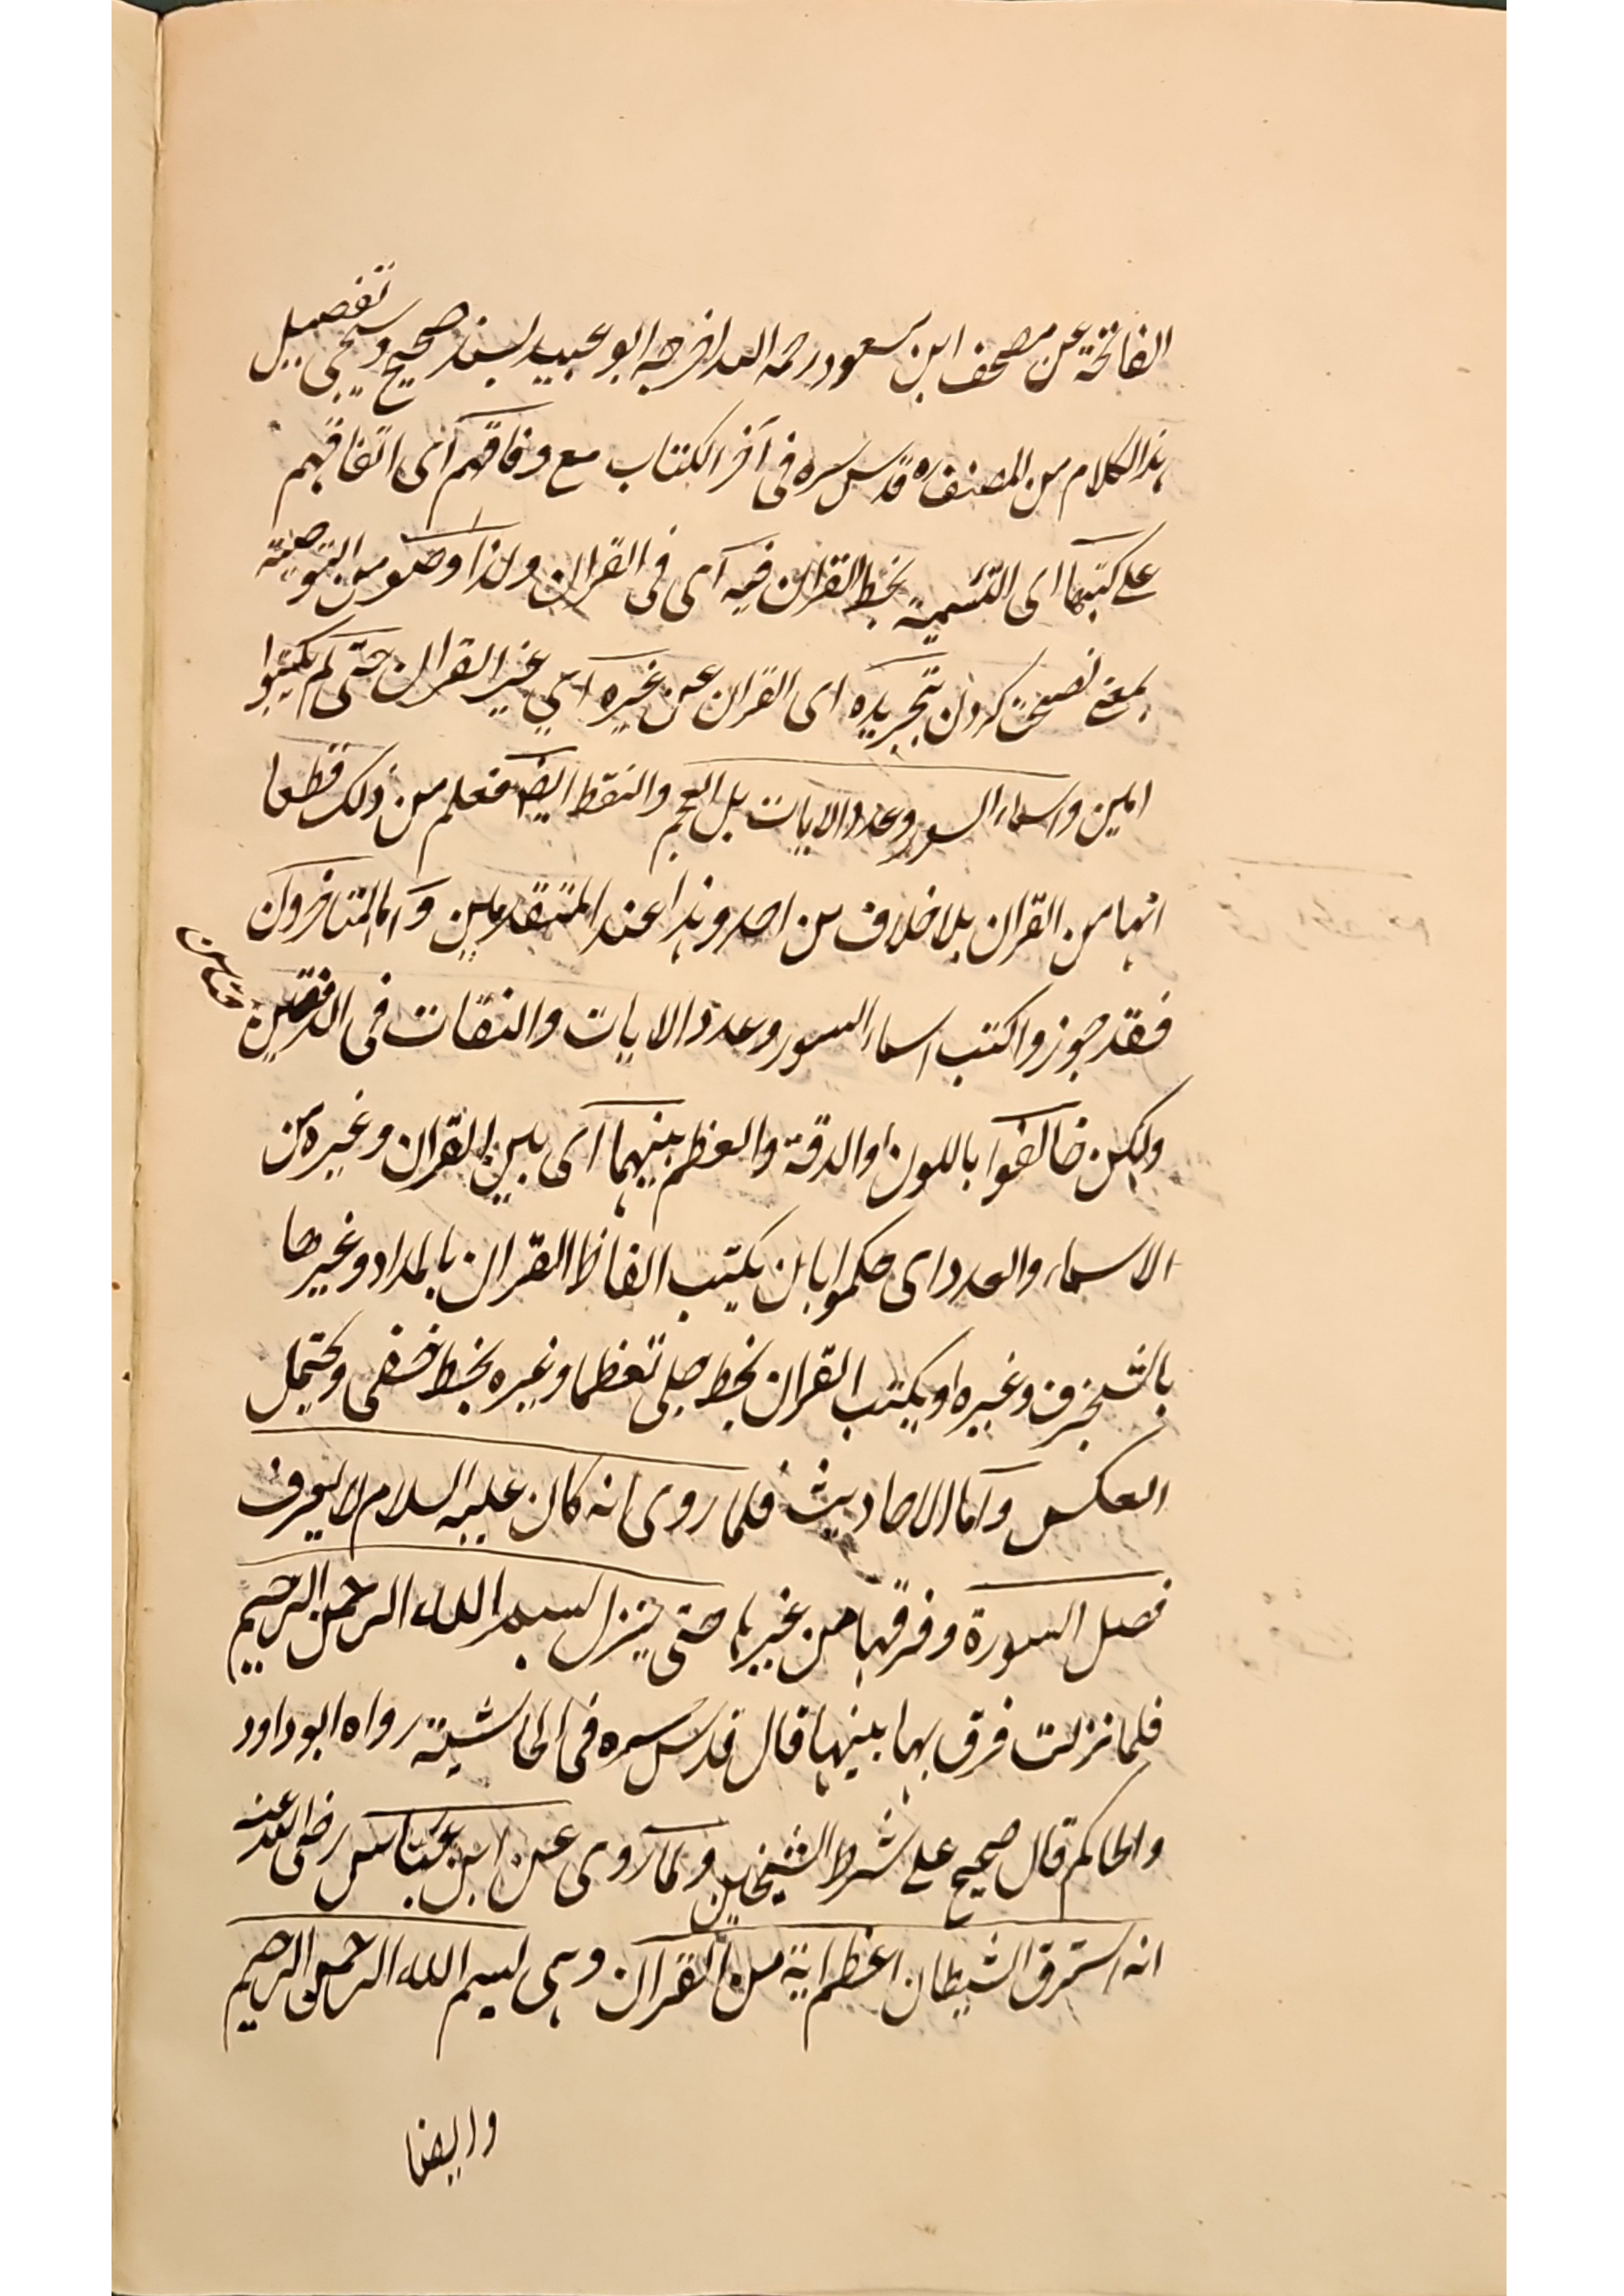 الفاتحة عن مصحف ابن مسعود رحمه الله اخرجه ابو عبيد بسند صحيح وسيجئ تفصيل
هذا الكلام من المصنف ره قدس سره فى آخر الكتاب مع وفاقهم اى اتفاقهم
على كتبها اى التسمية بخط القران فيه اى فى القران ولذا وصوا من التوصية
بمعنى نصيحت كردن بتجريده اى القران عن غيره اى غير القران حتى لم يكتبوا
امين واسماء السور وعدد الايات بل العجم والنقط ايضا فعلم من ذلك قطعا
انها من القران بلا خلاف من احد وهذا عند المتقدمين واما المتاخرون
فقد جوزوا كتب اسماء السور وعدد الايات والنقات فى الدفتين
ولكن خالفوا باللون او الدقة والعظم بينهما اى بين القران وغيره من
الاسماء والعدد اى حكموا بان يكتب الفاظ القران بالمداد وغيرها
بالشنجرف وغيره او يكتب القران بخط جلى تعظما وغيره بخط خفى ويحتمل
العكس واما الاحاديث فلما روى انه كان عليه السلام لا يعرف
فصل السورة وفرقها من غيرها حتى ينزل بسم الله الرحمن الرحيم
فلما نزلت فرق بها بينها قال قدس سره فى الحاشية رواه ابو داود
والحاكم قال صحيح على شرط الشيخين ولما روى عن ابن عباس رضى الله عنه
انه استرق الشيطان اعظم اية من القران وهى بسم الله الرحمن الرحيم
وايضا